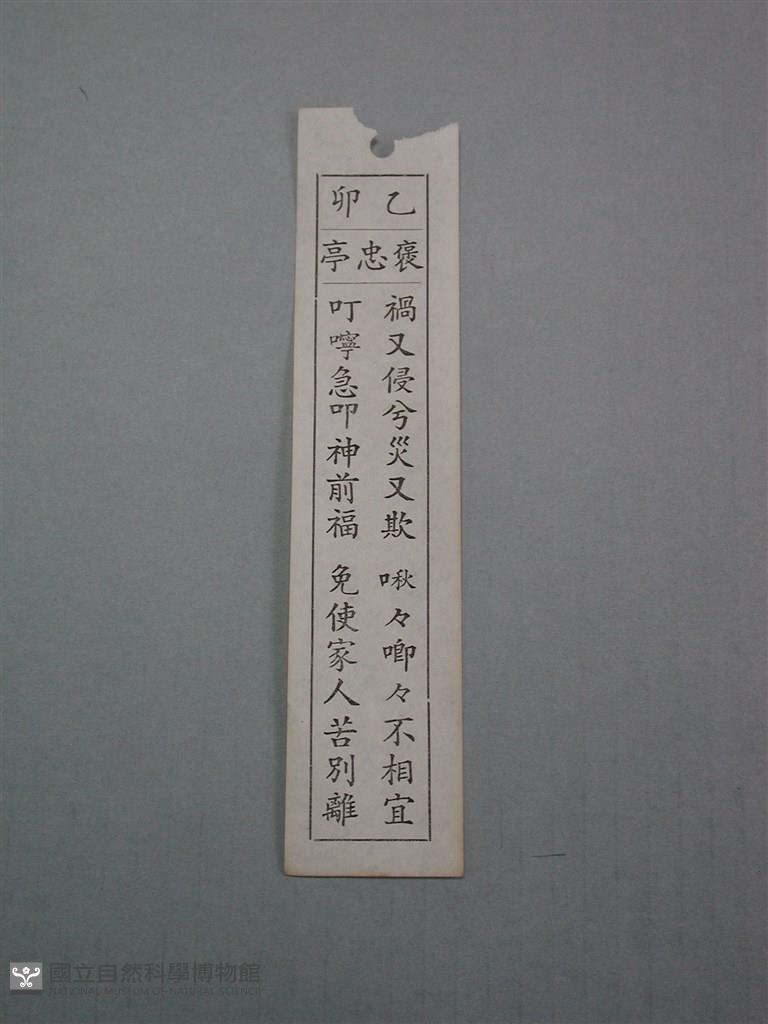 乙卯
褒忠亭
禍又侵兮災又欺　啾々唧々不相宜
叮嚀急叩神前福　免使家人苦別離
國立自然科學博物館
NATIONAL MUSEUM OF NATURAL SCIENCE